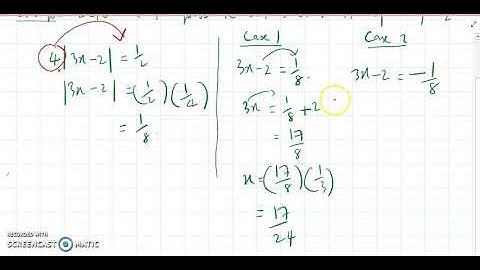 4|3x-2| = 1/2
|3x-2| = (1/2)(1/4)
= 1/8.
Case 1
3x-2 = 1/8.
3x = 1/8 + 2
= 17/8
x = (17/8)(1/3)
= 17/24
Case 2
3x-2 = -1/8
RECORDED WITH
SCREENCAST MATIC